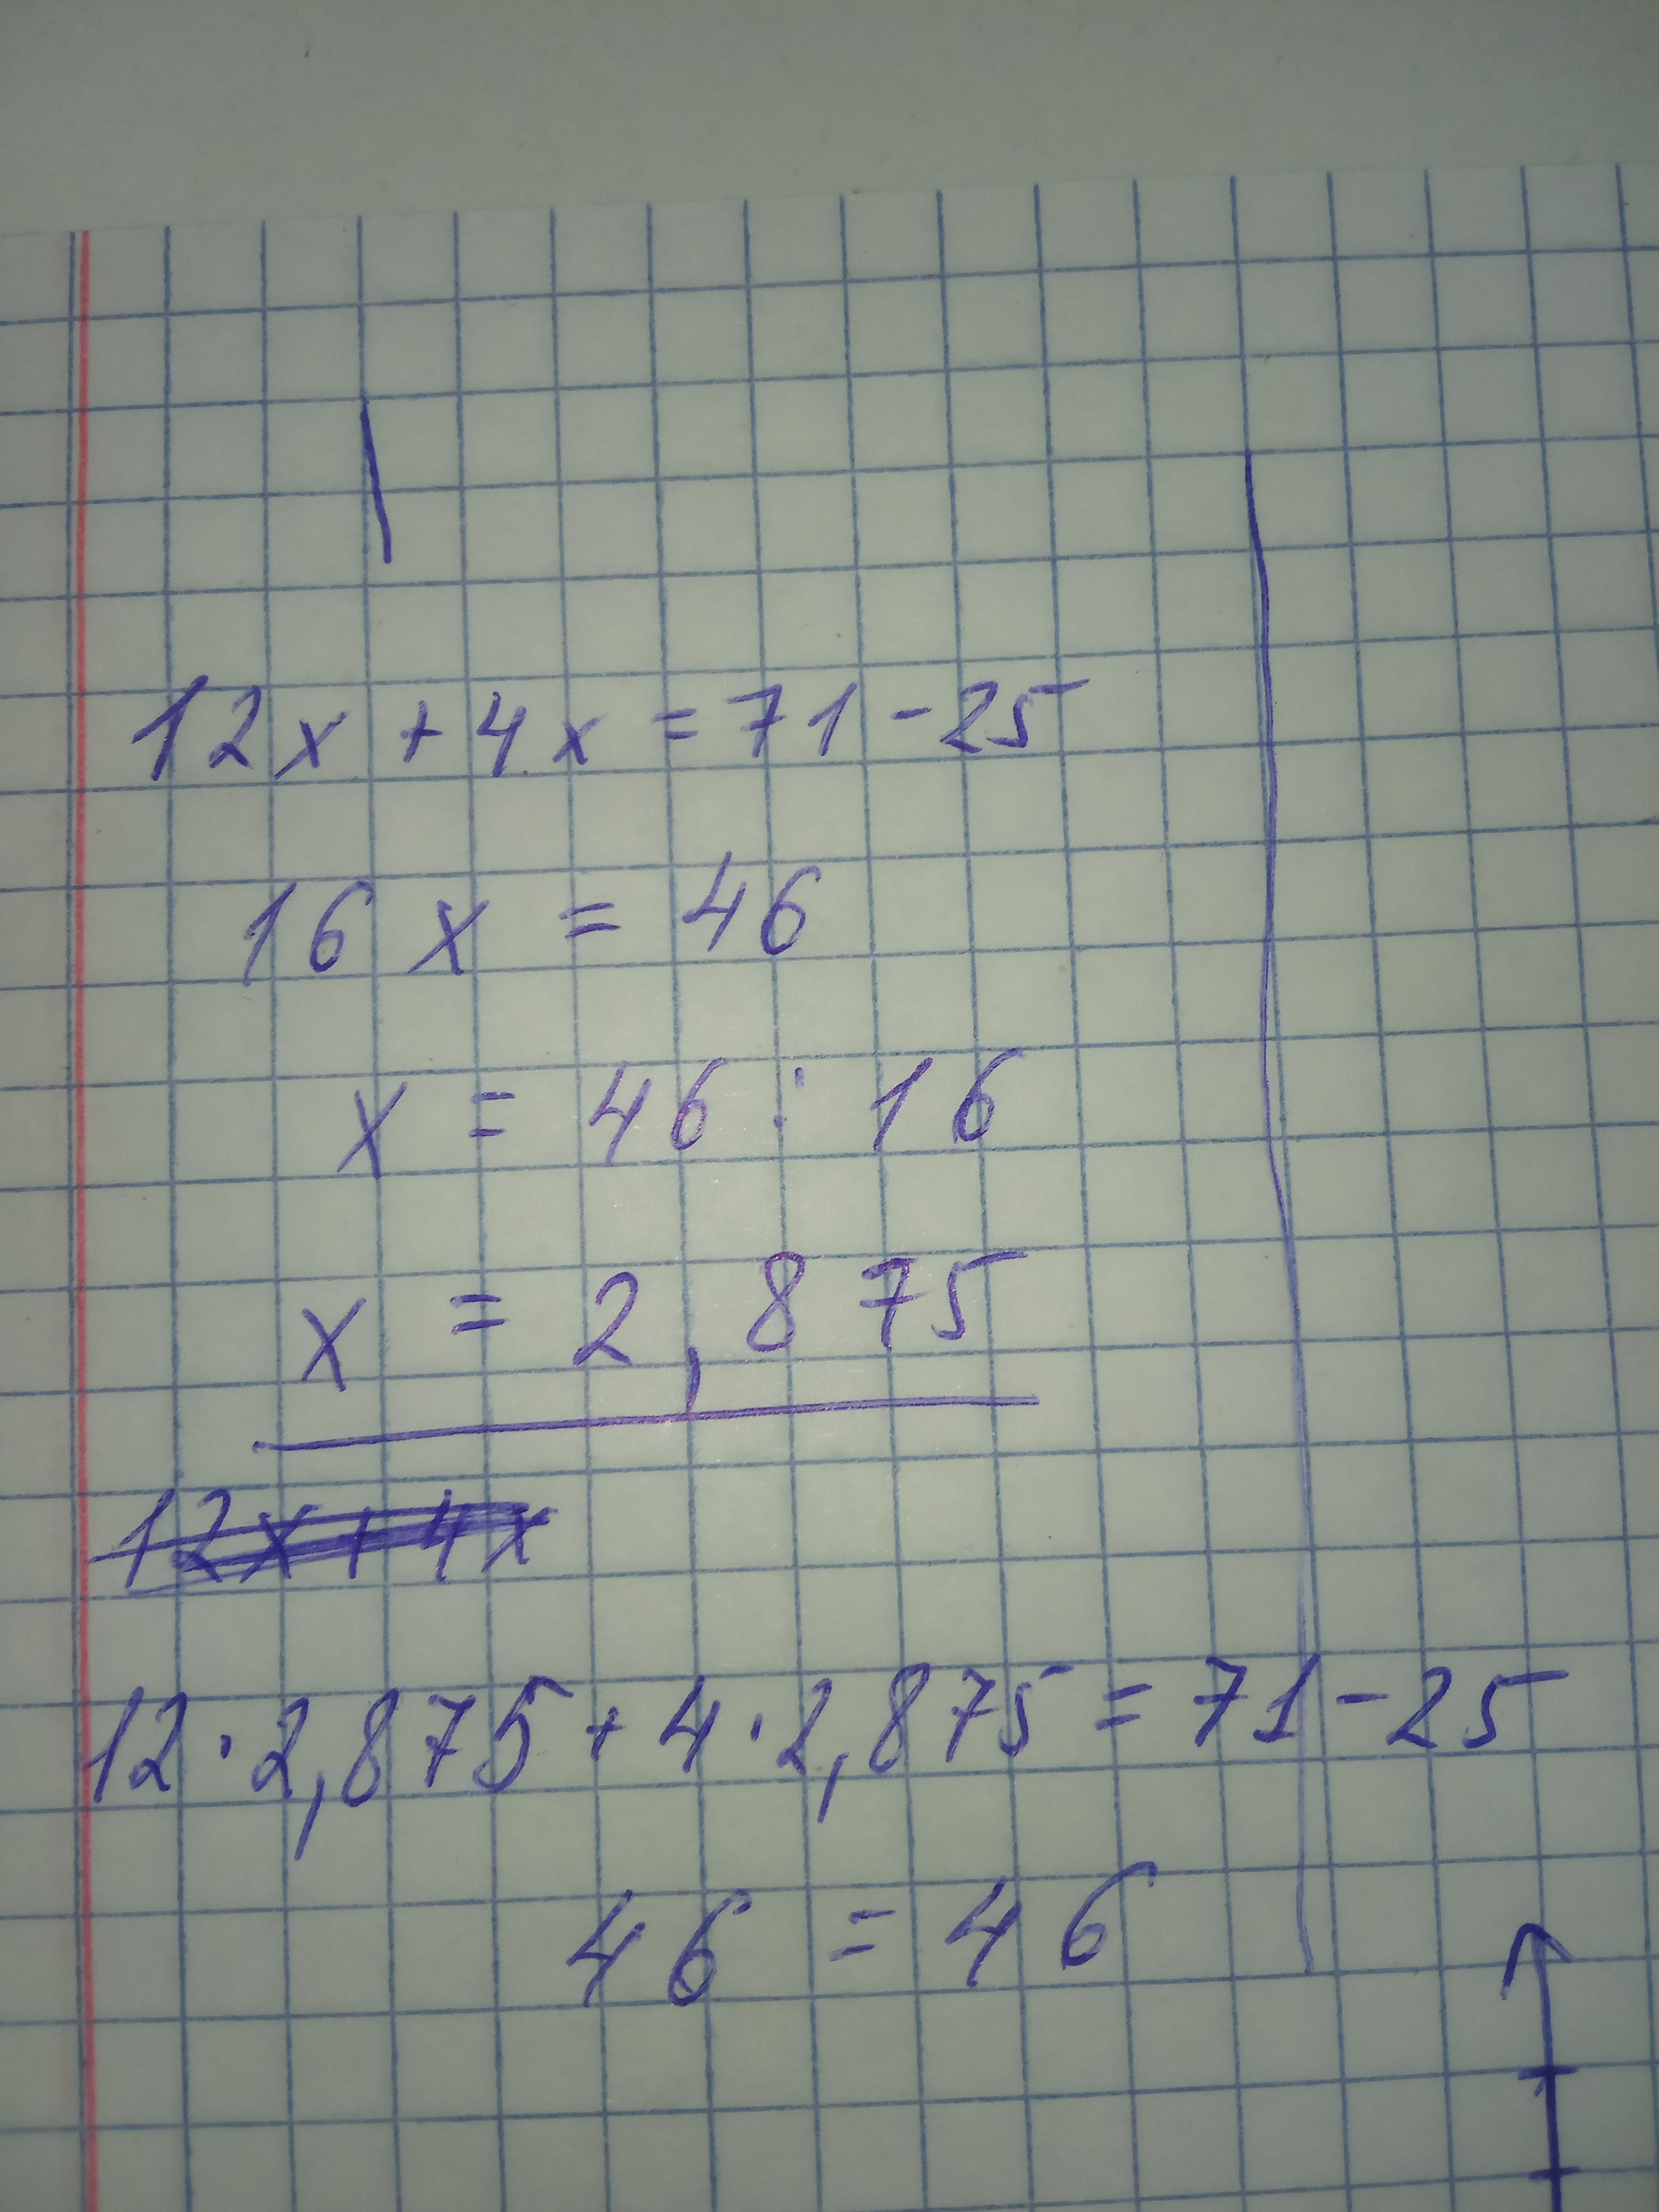 12x + 4x = 71 - 25
16x = 46
x = 46 : 16
x = 2,875
12x + 4x
12 · 2,875 + 4 · 2,875 = 71 - 25
46 = 46